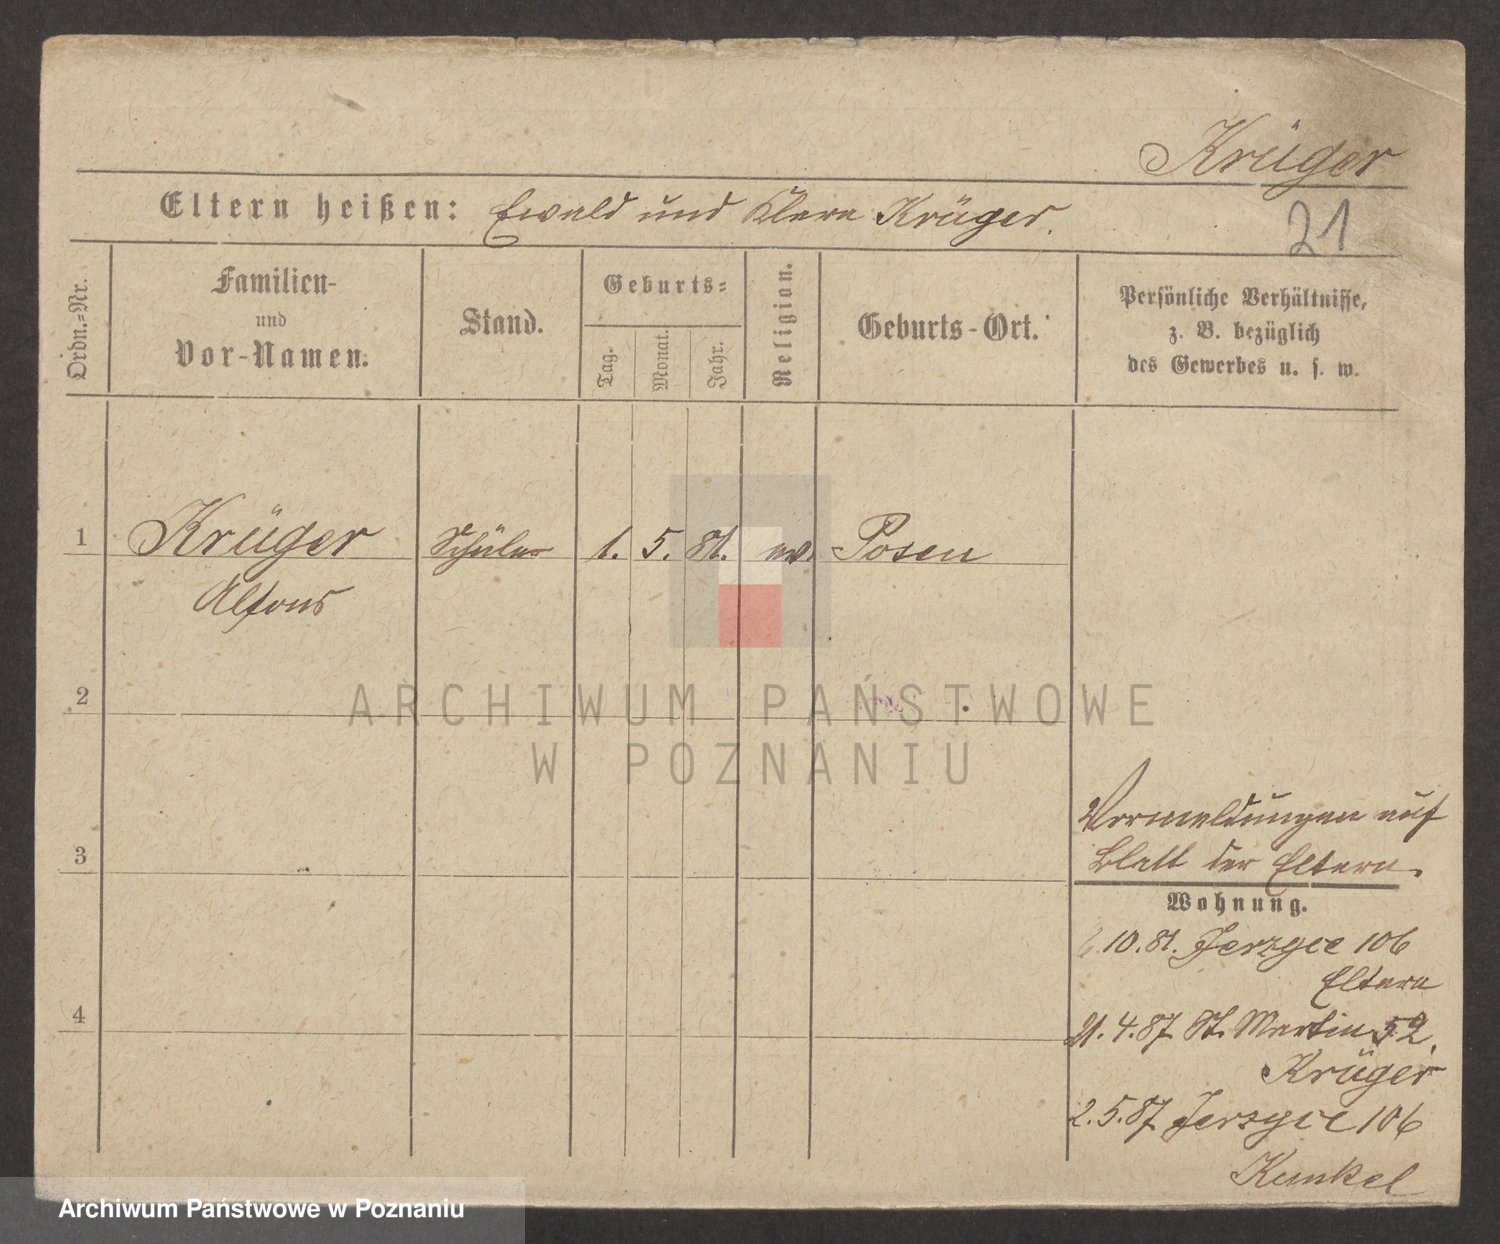 Krüger
Eltern heißen: Ewald und Klara Krüger.
21
Ordn.-Nr.
Familien-
und
Vor-Namen.
Stand.
Geburts-
Tag.
Monat.
Jahr.
Religion.
Geburts-Ort.
Persönliche Verhältnisse,
z. B. bezüglich
des Gewerbes u. s. w.
1 Krüger Schüler 1. 5. 81. ev Posen
Alfons
2
ARCHIWUM PAŃSTWOWE
W POZNANIU
3
Vermeldungen auf
Blatt der Eltern.
Wohnung.
10. 81. Jerzyce 106
Eltern
4
21. 4. 87 St. Martin 52.
Krüger
2. 5. 87 Jerzyce 106
Kunkel
Archiwum Państwowe w Poznaniu